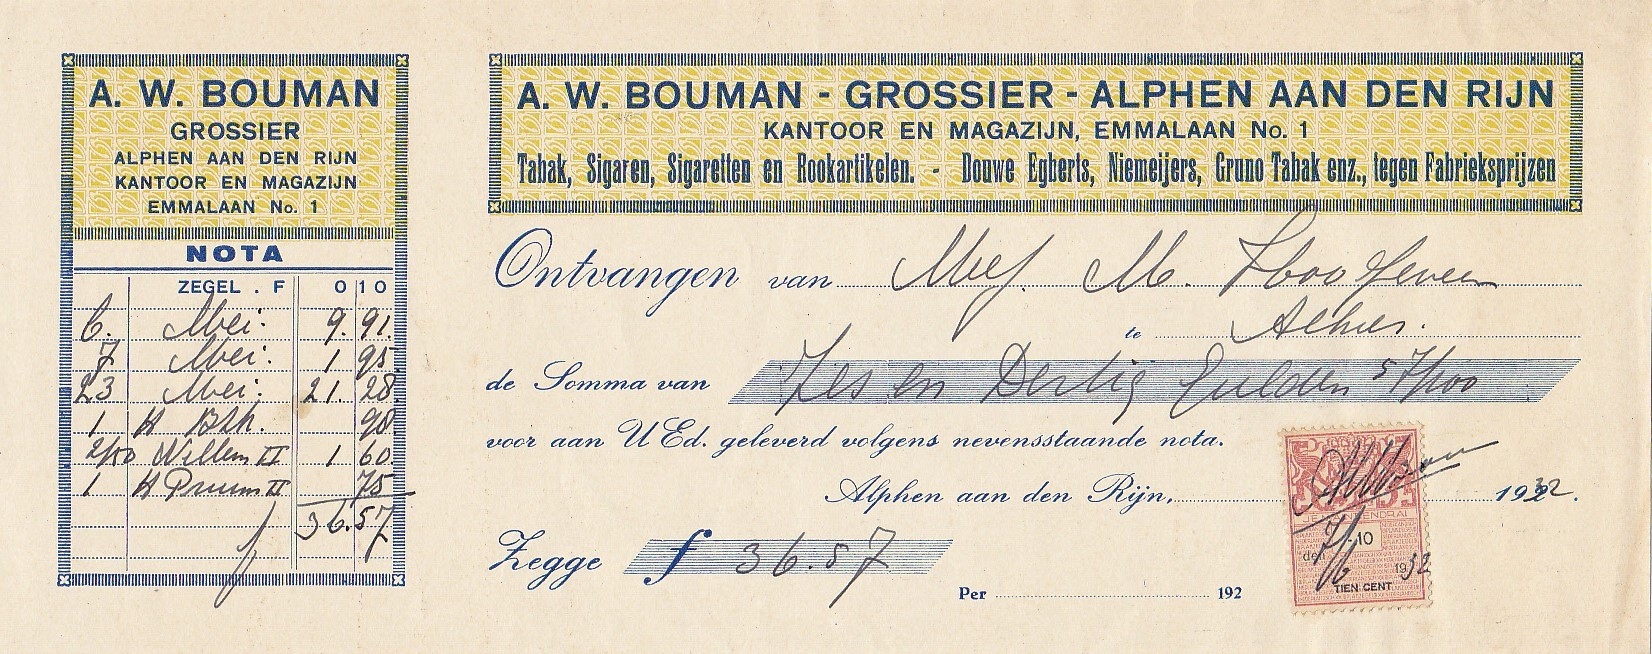 A. W. BOUMAN
GROSSIER
ALPHEN AAN DEN RIJN
KANTOOR EN MAGAZIJN
EMMALAAN No. 1
NOTA
ZEGEL . F 0 10
6. Mei. 9. 91.
7 Mei. 1 95
23 Mei. 21. 28
1 H 98
2/50 Willem II 1 60
1 H Pruim II 75
f 36.57
A. W. BOUMAN - GROSSIER - ALPHEN AAN DEN RIJN
KANTOOR EN MAGAZIJN, EMMALAAN No. 1
Tabak, Sigaren, Sigaretten en Rookartikelen. - Douwe Egberts, Niemeijers, Gruno Tabak enz., tegen Fabrieksprijzen
Ontvangen van Mej. M.
te
de Somma van Zes en Dertig Gulden 57/100
voor aan U Ed. geleverd volgens nevensstaande nota.
Alphen aan den Rijn, 1932.
Zegge f 36.57
Per 192
den 7/6 10 1932
TIEN CENT